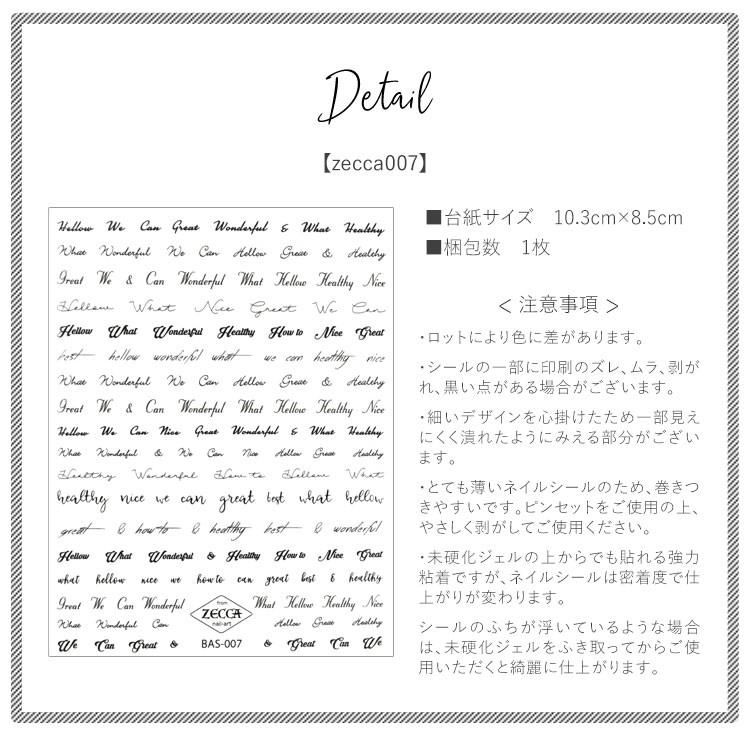 Detail
【zecca007】
Hellow We Can Great Wonderful & What Healthy
What Wonderful We Can Hellow Great & Healthy
Great We & Can Wonderful What Hellow Healthy Nice
Hellow What Nice Great We Can
Hellow What Wonderful Healthy How to Nice Great
best hellow wonderful what we can healthy nice
What Wonderful We Can Hellow Great & Healthy
Great We & Can Wonderful What Hellow Healthy Nice
Hellow We Can Nice Great Wonderful & What Healthy
What Wonderful & We Can Nice Hellow Great Healthy
Healthy Wonderful How to Hellow What
healthy nice we can great best what hellow
great & how to & healthy best & wonderful
Hellow What Wonderful & Healthy How to Nice Great
what hellow nice we how to can great best & healthy
Great We Can Wonderful What Hellow Healthy Nice
What Wonderful Can Hellow Great Healthy
from
ZECCA
nail-art
We Can Great & BAS-007 & Great Can We
■台紙サイズ 10.3cm×8.5cm
■梱包数 1枚
< 注意事項 >
・ロットにより色に差があります。
・シールの一部に印刷のズレ、ムラ、剥が
れ、黒い点がある場合がございます。
・細いデザインを心掛けたため一部見え
にくく潰れたようにみえる部分がござい
ます。
・とても薄いネイルシールのため、巻きつ
きやすいです。ピンセットをご使用の上、
やさしく剥がしてご使用ください。
・未硬化ジェルの上からでも貼れる強力
粘着ですが、ネイルシールは密着度で仕
上がりが変わります。
シールのふちが浮いているような場合
は、未硬化ジェルをふき取ってからご使
用いただくと綺麗に仕上がります。